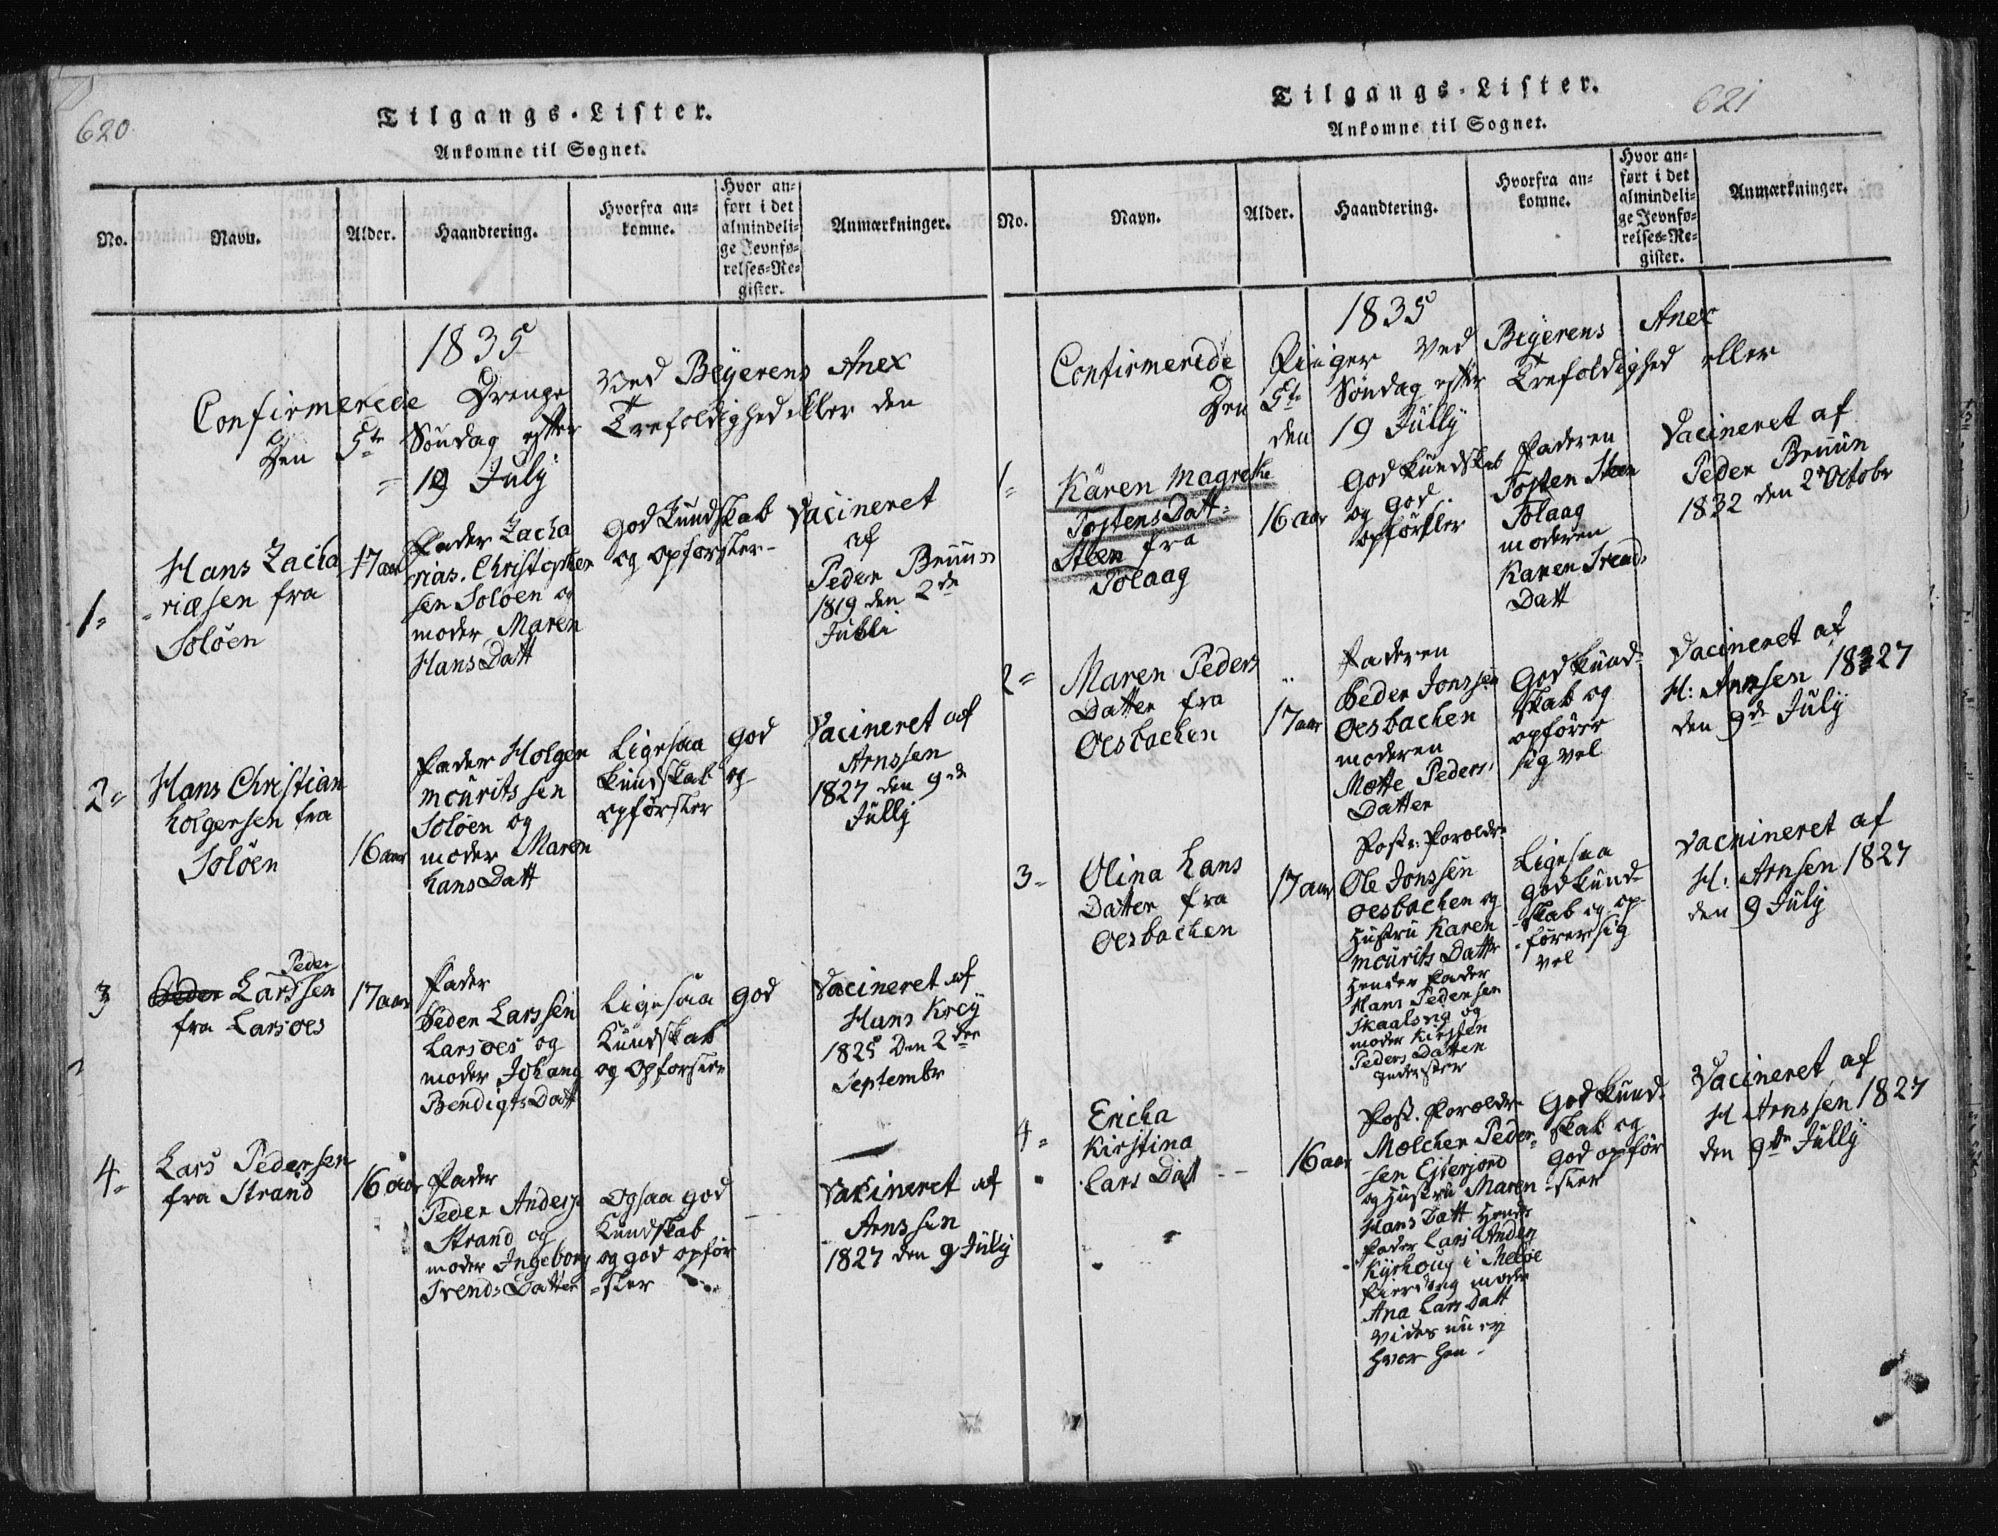 620
Tilgangs-Lister.
Ankomne til Sognet.
No.
Navn.
Alder.
Haandtering.
Hvorfra an-
komne.
Hvor an-
ført i det
almindeli-
ge Jevnfø-
relses-Re-
gister.
Anmærkninger.
1835
Confirmerede Drenge Ved Beyerens Anex
Den 5te Søndag efter Trefoldighed eller den
= 19 July
1=
Hans Zacha
-riæsen fra
Soløen
17 aar
Fader Zacha
rias. Christopher
sen Soløen og
moder Maren
Hans Datt
god kundskab
og opførsler-
Vacineret
af
Peder Bruun
1819 den 2de
Julli
2=
Hans Christian
holgersen fra
Soløen
16 aar
Fader Holger
mouritssen
Soløen og
moder Maren
hans Datt
Ligesaa god
kundskab og
opførsler
Vacineret af
Arnssen
1827 den 9de
Jully
3
Peder
Peder Larssen
fra Larsoes
17 aar
Fader
Peder Larssen
Larsoes og
moder Johana
Bendigts Datt
Ligesaa god
Kundskab
og opførsler
Vacineret af
Hans Krey
1825 Den 2den
Septembr
4=
Lars Pedersen
fra Strand
16 aar
Fader
Peder Anders
Strand og
moder Ingeborg
Svends Datter
Ogsaa god
Kundskab
og god opfør
-sler
Vacineret af
Arnssen
1827 den 9 July
621
Tilgangs-Lister.
Ankomne til Sognet.
No.
Navn.
Alder.
Haandtering.
Hvorfra an-
komne.
Hvor an-
ført i det
almindeli-
ge Jevnfø-
relses-Re-
gister.
Anmærkninger.
1835
Confirmerede Piiger Ved Beyerens Anex
Den 5te Søndag efter Trefoldighed eller
den 19 Jully
1=
Karen Magrethe
Tostens Datt=
Steen fra
Solaag
16 aar
God kundskab
og god
opførsler
Faderen
Tosten Steen
Solaag
moderen
Karen Svends
Datt
Vacineret af
Peder Bruun
1832 den 2 Octobr
2=
Maren Peders
Datter fra
Oesbachen
17 aar
Faderen
Peder Jonssen
Oesbachen
moderen
Mette Peders
Datter
God kund-
skab og
opfører
sig vel
Vacineret af
H: Arnsen 1827
den 9de July
3-
Olina hans
Datter fra
Oesbachen
17 aar
Post: Foreldre
Ole Jonssen
oesbachen og
Hustru Karen
mourits Datter
Hendes Fader
Hans Pedersen
Skaalsvig og
moder Kirsten
Peders Datter
Inderster
Ligesaa
god kund-
skab og op-
-fører sig
vel
Vacnineret af
H: Arnsen 1827
den 9 July
4=
Ericha
Kirstina
Lars Datt
16 aar
Post. Foreldre
Molcher Peder-
sen Esterjord
og Hustru Maren
Hans Datt Hendes
Fader Lars Anders
Kyrhoug i Meløe
Fierding moder
Ana Lars Datt
Vides nu ey
hvor hen-
God kund-
skab og
god opfør
-sler
Vacineret af
H Arnssen 1827
den 9de Jully